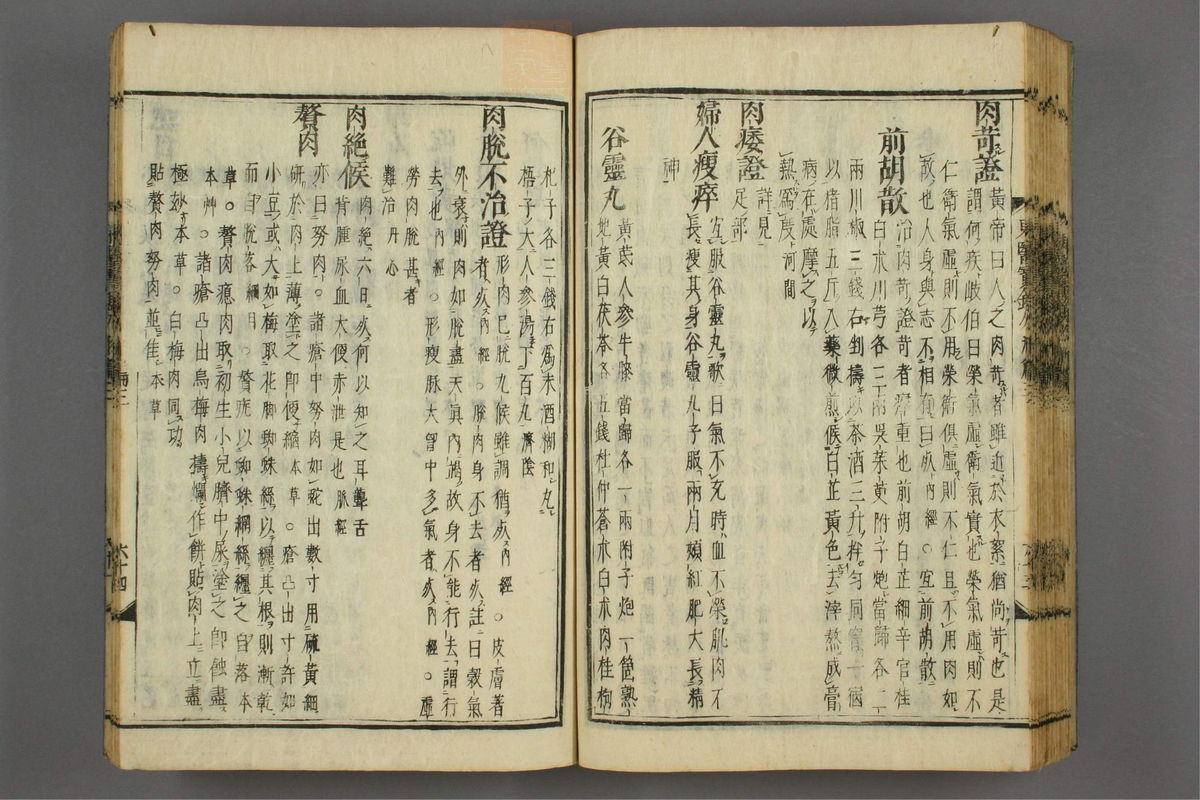 肉苛證 黃帝曰人之肉苛者雖近於衣絮猶尚苛也是
謂何疾岐伯曰榮氣虛衛氣實也榮氣虛則不
仁衛氣虛則不用榮衛俱虛則不仁且不用肉如
故也人身與志不相有曰死內經○宜前胡散
前胡散 治肉苛證苛者𤸷重也前胡白芷細辛官桂
白朮川芎各三兩吳茱萸附子炮當歸各二
兩川椒三錢右剉擣以茶酒三升拌勻同窨一宿
以猪脂五斤入藥微煎候白芷黃色去滓熬成膏
病在處摩之以
熱爲度河間
肉痿證 詳見
足部
婦人瘦瘁 宜服谷靈丸歌曰氣不充時血不榮肌肉不
長瘦其身谷靈丸子服兩月頰紅肥大長精
神
谷靈丸 黃芪人參牛膝當歸各一兩附子炮一箇熟
地黃白茯苓各五錢杜仲蒼朮白朮肉桂枸
東醫寶鑑外形篇 三
杞子各三錢右爲末酒糊和丸
梧子大人參湯下百丸濟陰
肉脫不治證 形肉已脫九候雖調猶死內經○皮膚著
者死內經○脫肉身不去者死註曰穀氣
外衰則肉如脫盡天眞內竭故身不能行去謂行
去也內經○形瘦脉大胷中多氣者死內經○虛
勞肉脫甚者
難治丹心
肉絶候 肉絶六日死何以知之耳聾舌
背腫尿血大便赤泄是也脉經
贅肉 亦曰努肉○諸瘡中努肉如蛇出數寸用硫黃細
硏於肉上薄塗之卽便縮本草○瘡凸出寸許如
小豆或大如梅取花脚蜘蛛絲以纒其根則漸乾
而自脫落綱目○贅疣以蜘蛛網絲纒之自落本
草○贅肉瘜肉取初生小兒臍中屎塗之卽蝕盡
本艸○諸瘡凸出烏梅肉擣爛作餠貼肉上立盡
極妙本草○白梅肉同功
貼贅肉努肉並佳本草
六十四